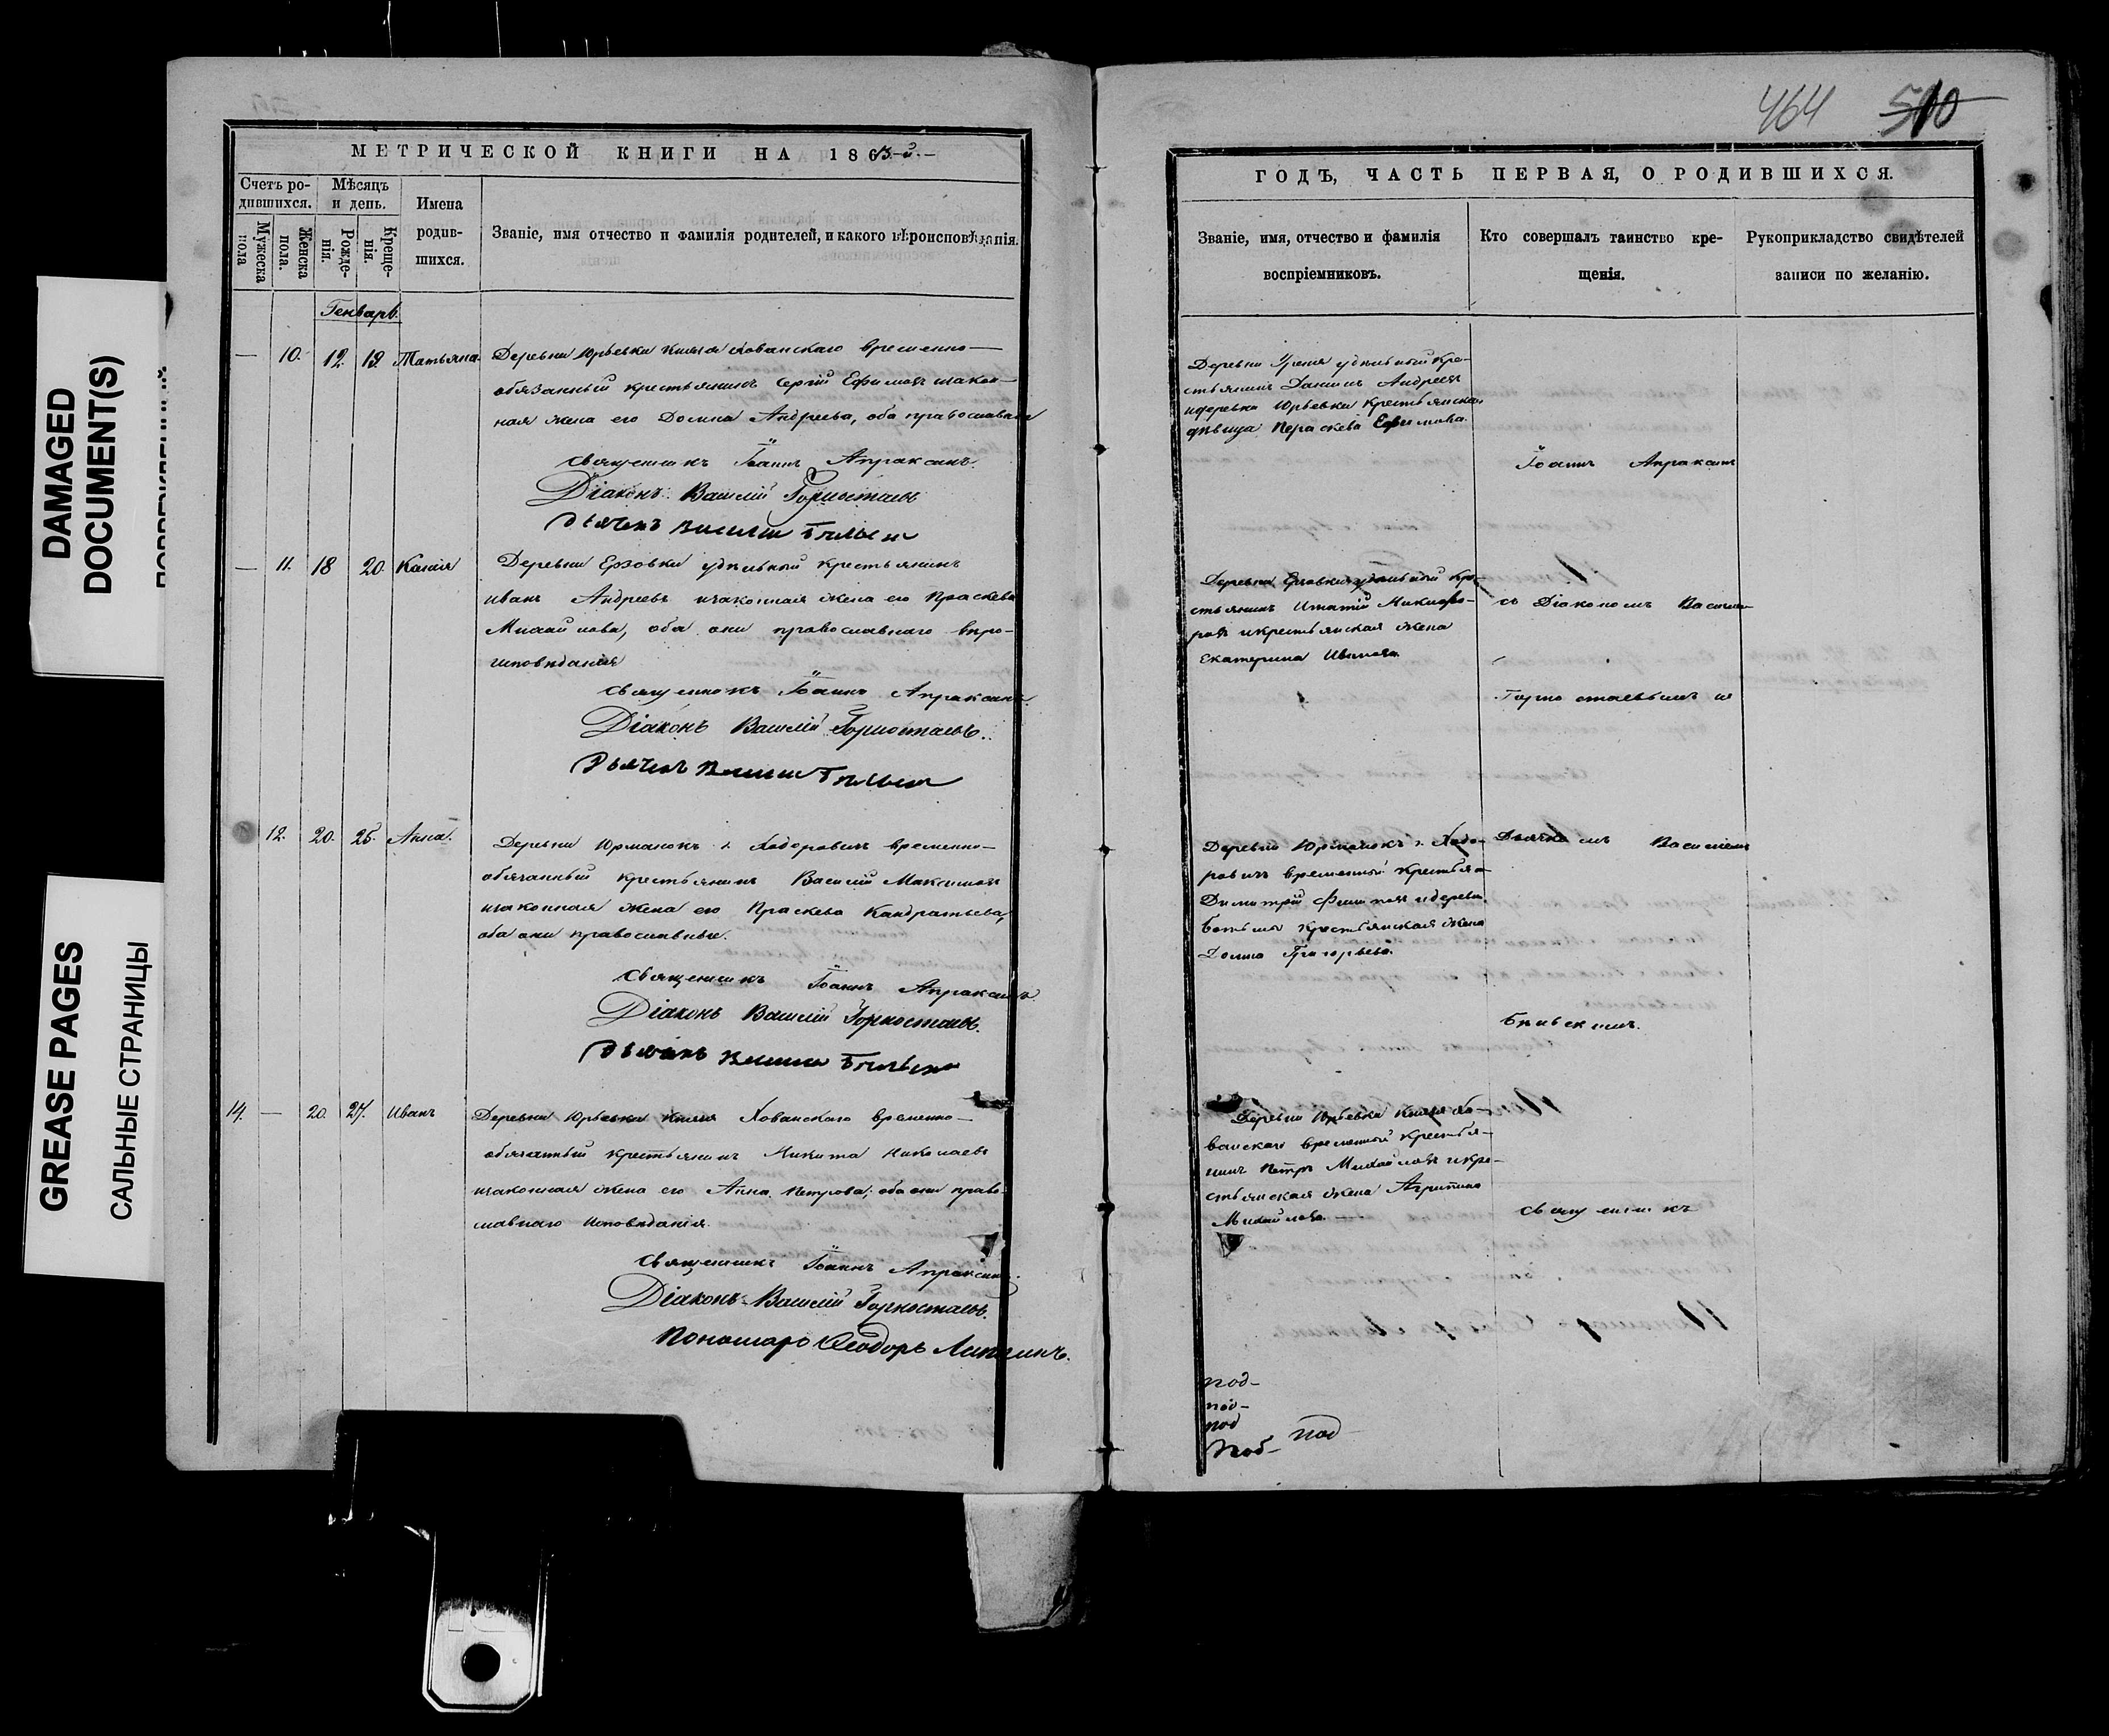 464 510
DAMAGED
DOCUMENT(S)
GREASE PAGES
САЛЬНЫЕ СТРАНИЦЫ
МЕТРИЧЕСКОЙ КНИГИ НА 1863-й.-
Счетъ ро-
дившихся.
Мѣсяцъ
и день.
Мужеска
пола
Женска
пола.
Рожде-
нія.
Креще-
нія.
Имена
родив-
шихся.
Званіе, имя отчество и фамилія родителей, и какого вѣроисповѣданія.
Генварь.
— 10. 12. 19. Татьяна
Деревни Юрьевки князя Хованскаго временно—
обязанный крестьянинъ Сергій Ефимовъ изакон—
ная жена его Домна Андреева, оба православные
Священникъ Іоаннъ Апраксинъ.
Діаконъ Василій Горностаевъ
— 11. 18 20.
Деревни Ерзовки удѣльный крестьянинъ
Иванъ Андреевъ изаконная жена его Праскева
Михайлова, оба они православнаго вѣро-
исповѣданія
Священникъ Іоаннъ Апраксинъ.
Діаконъ Василій Горностаевъ.
12. 20. 25. Анна.
Деревни Юрманокъ г. Ходоровичъ временно—
обязанный крестьянинъ Василій Максимовъ
изаконная жена его Праскева Кандратьева,
оба они православные.
Священникъ Іоаннъ Апраксинъ.
Діаконъ Василій Горностаевъ.
14. — 20. 27. Иванъ
Деревни Юрьевки князя Хованскаго временно—
обязанный крестьянинъ Никита Николаевъ
изаконная жена его Анна Петрова; оба они право-
славнаго исповѣданія.
Священникъ Іоаннъ Апраксинъ.
Діаконъ Василій Горностаевъ.
Пономарь Ѳеодоръ
ГОДЪ, ЧАСТЬ ПЕРВАЯ, О РОДИВШИХСЯ.
Званіе, имя, отчество и фамилія
воспріемниковъ.
Кто совершалъ таинство кре-
щенія.
Рукоприкладство свидѣтелей
записи по желанію.
Деревни удѣльный кре-
стьянинъ Данилъ Андреевъ
идеревни Юрьевки крестьянская
дѣвица Параскева Ефимова.
Іоаннъ Апраксинъ
Деревни Ерзовки удѣльный кре-
стьянинъ Игнатій Никифо-
ровъ икрестьянская жена
Екатерина Иванова.
съ Діакономъ Василіемъ
Горностаевымъ и
Деревни Юрманокъ г. Ходо-
ровичъ временный крестьян.
Димитрій идеревн.
крестьянская жена
Домна Григорьева.
Дьячкомъ Василіемъ
Деревни Юрьевки князя Хо-
ванскаго временный крестья-
нинъ Петръ Михайловъ икре-
стьянская жена Агрипина
Михайлова.
Священникъ
под-
под-
под
под- под